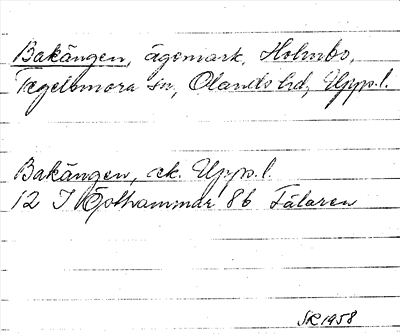 Bakängen, ägomark, Holmbo,
Tegelsmora sn, Olands hd, Upps. l.
Bakängen, ek. Upps. l.
12 I Östhammar 8b Tälaren
SR 1958